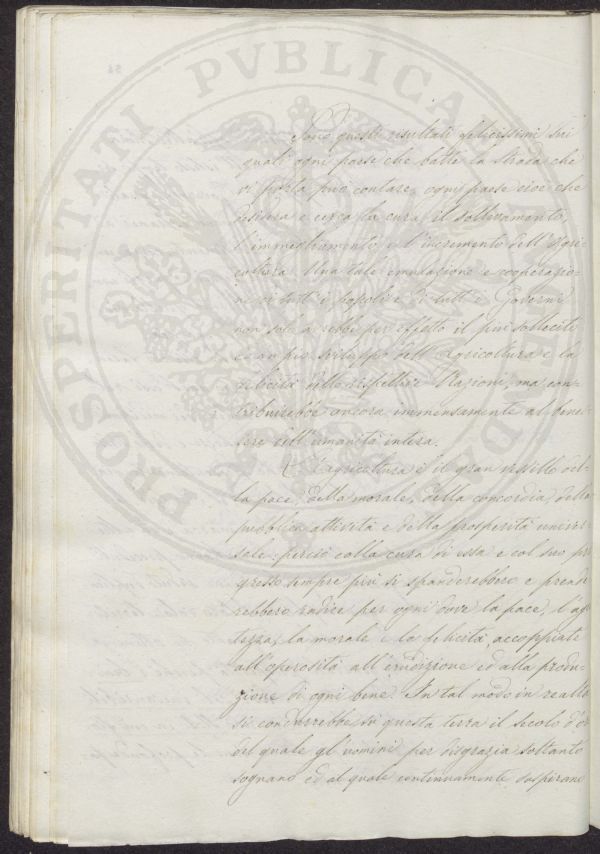 Sono questi risultati felicissimi sui
quali ogni paese che batte la strada che
vi porta può contare, ogni paese cioè che
desidera e cerca la cura, il sollevamento,
l'immegliamento, e l'incremento dell'Agri-
coltura. Una tale emulazione e cooperazio-
ne di tutti i popoli e di tutti i Governi
non solo avrebbe per effetto il più sollecito
ed ampio sviluppo dell'Agricoltura e la
felicità delle rispettive Nazioni, ma con-
tribuirebbe ancora immensamente al benes-
sere dell'umanità intera.
L'agricoltura è il gran vessillo del-
la pace, della morale, della concordia, della
pubblica attività e della prosperità univer-
sale: perciò colla cura di essa e col suo pro
gresso sempre più si spanderebbero e prende
rebbero radice per ogni dove la pace, l'ag
tezza, la morale e la felicità, accoppiate
all'operosità all'erudizione ed alla produ-
zione di ogni bene. In tal modo in realtà
si condurrebbe su questa terra il secolo d'or
del quale gl'uomini per disgrazia soltanto
sognano ed al quale continuamente aspirano
PROSPERITATI PVBLICAE AVGENDAE